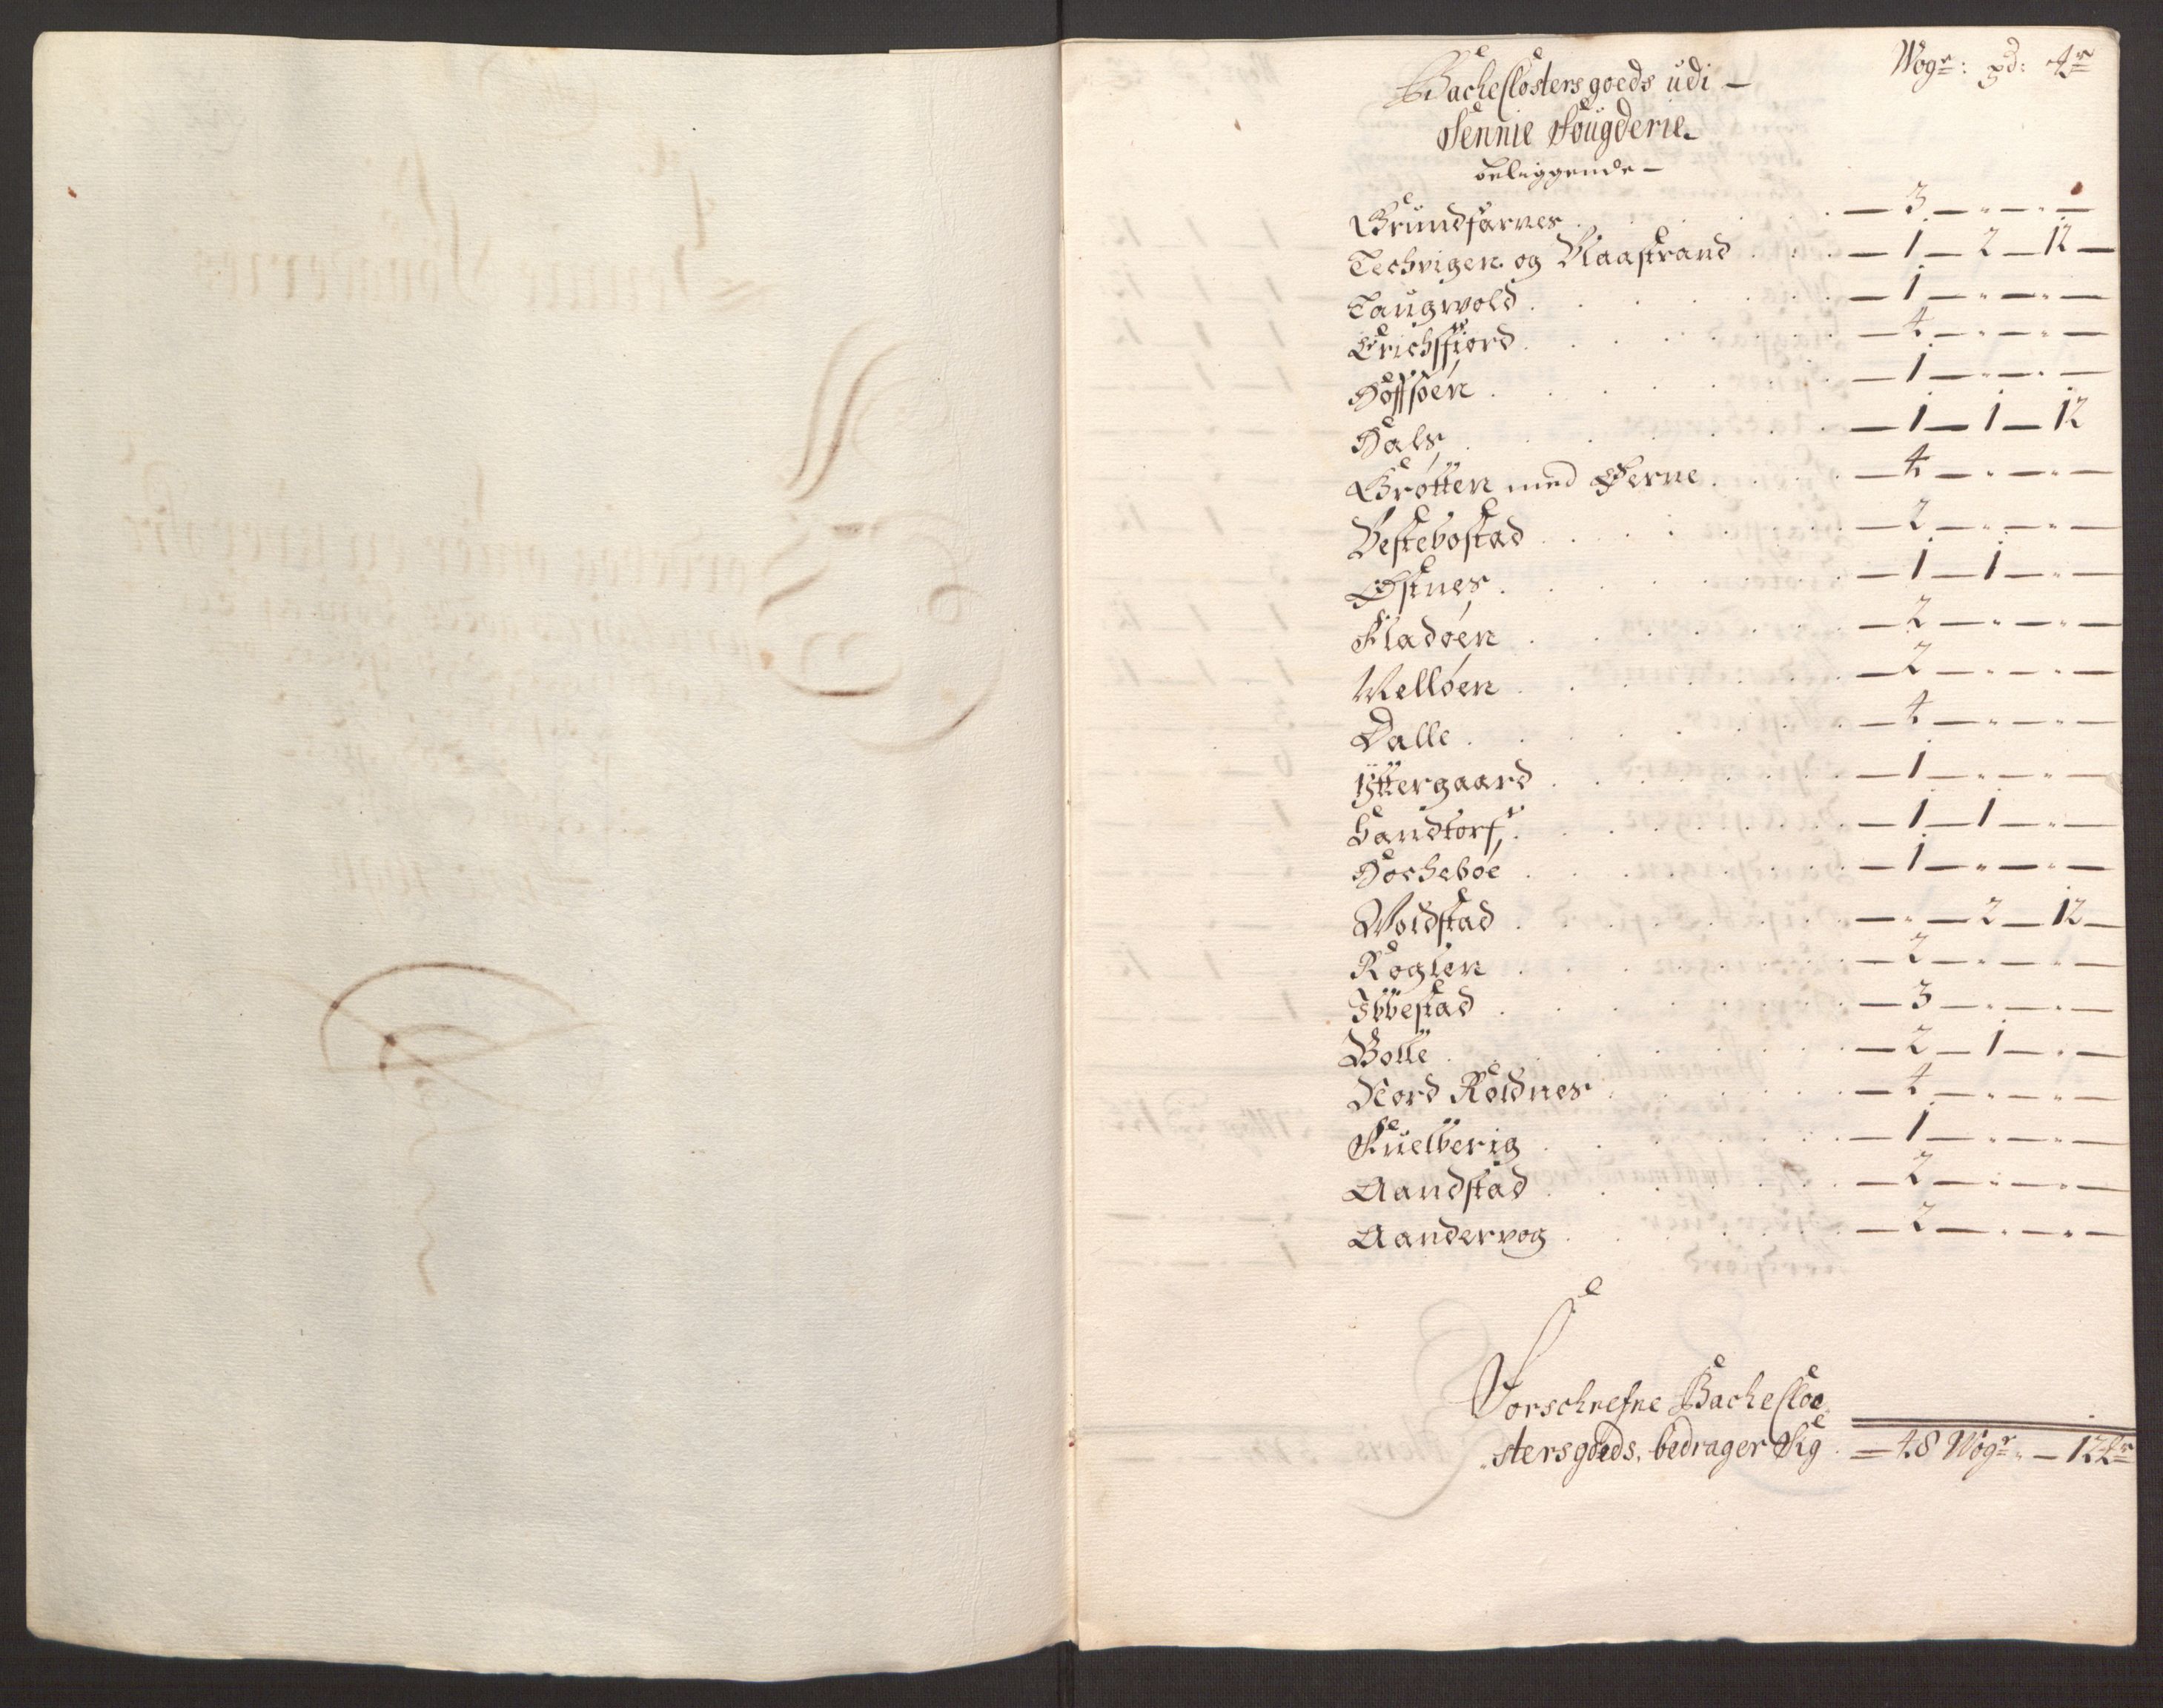 Wogr: pd: ℔r
Bacheclosters goeds udi —
Sennie Fougderie
beliggende —
Grundfarnes . . . — 3 — " — " —
Techvigen og Raastrand . . . — 1 — 2 — 12 —
Taugwold . . . — 1 — " — " —
Erichsfiord . . . — 4 — " — " —
Hoffsøen . . . — 1 — " — " —
Hals . . . — 1 — 1 — 12
Grøtten med Øerne . . . — 4 — " — " —
Vestebostad . . . — 2 — " — " —
Østnes . . . — 1 — 1 — " —
Fladøen . . . — 2 — " — " —
Melløen . . . — 2 — " — " —
Dalle . . . — 4 — " — " —
Yttergaard . . . — 1 — " — " —
Sandtorf . . . — 1 — 1 — " —
Hochebøe . . . — 1 — " — " —
Woldstad . . . — " — 2 — 12 —
Roglen . . . — 2 — " — " —
Ibbestad . . . — 3 — " — " —
Bolle . . . — 2 — 1 — " —
Nord Roldnes . . . — 4 — " — " —
Kuelberig . . . — 1 — " — " —
Aandstad . . . — 2 — " — " —
Aandervog . . . — 2 — " — " —
Forschrefne Bachecloe
stersgoeds, bedrager Sig — 48 Wogr " — 12 ℔r